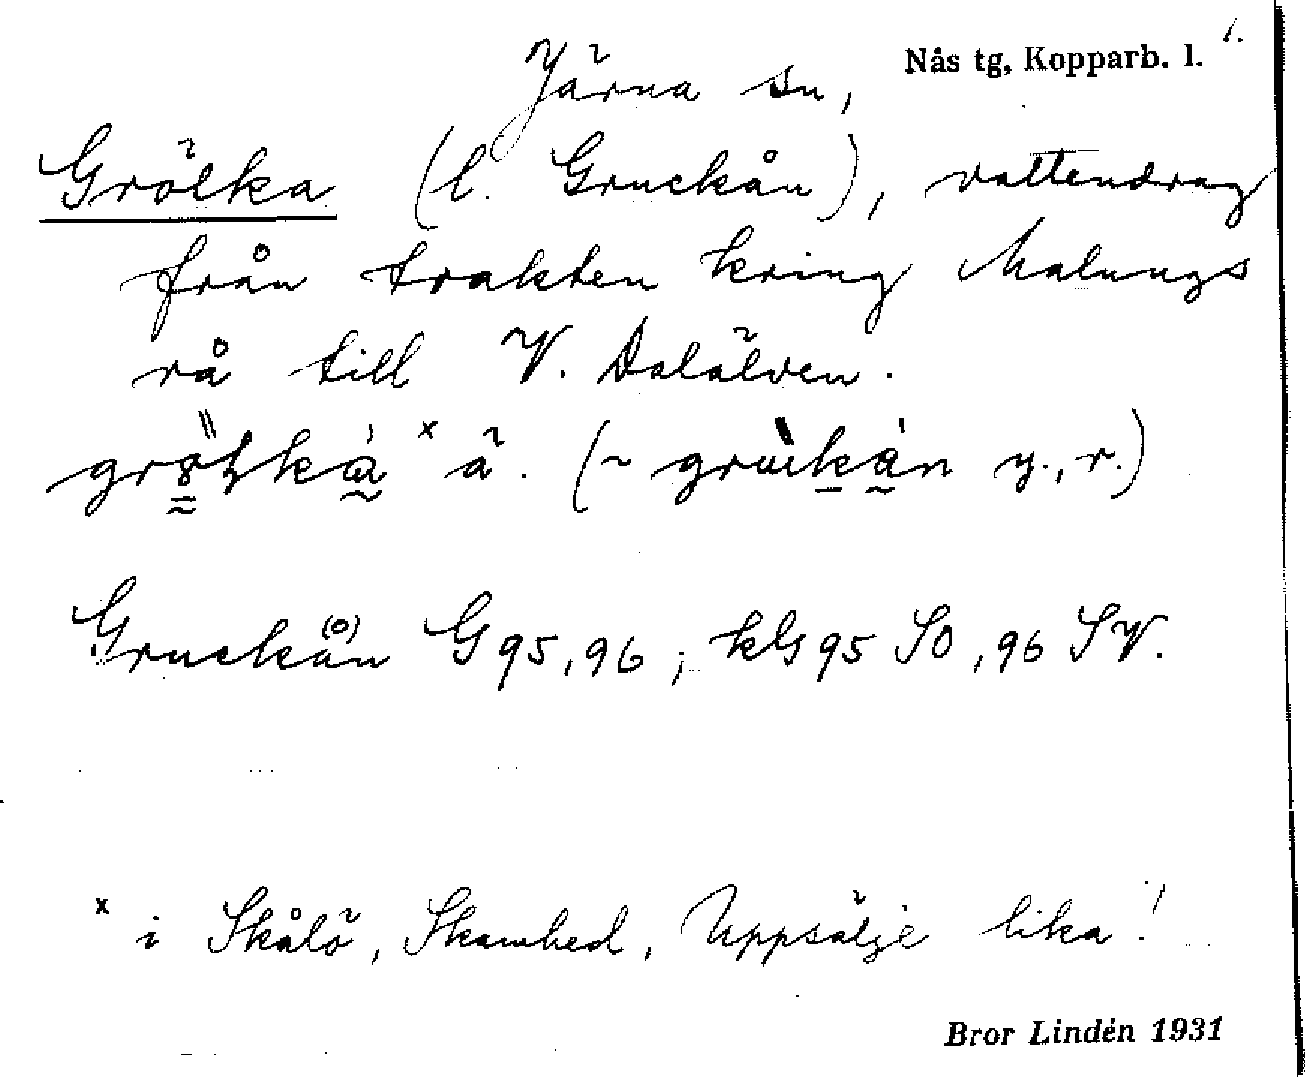 1.
Järna sn, Nås tg, Kopparb. l.
Grölka (l. Gruckån), vattendrag
från trakten kring Malungs
rå till V. Dalälven.
x ä. (~ gruckån y., r.)
Gruckån G 95, 96; kG 95 SO, 96 SV.
x i Skålö, Skamhed, Uppsälje lika!
Bror Lindén 1931